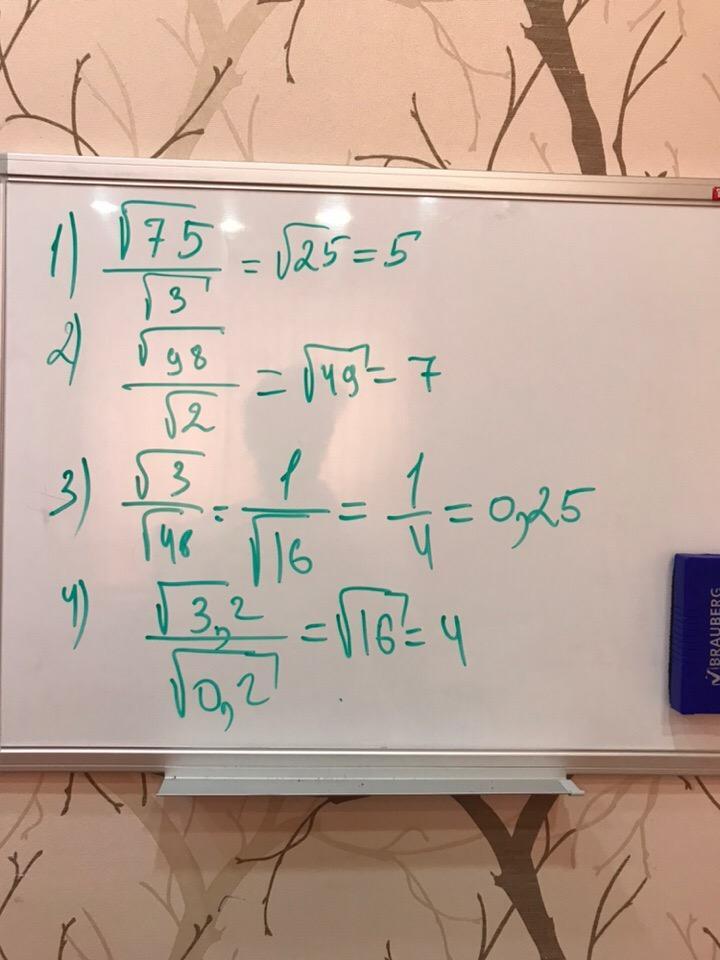 1) √75/√3 = √25 = 5
2) √98/√2 = √49 = 7
3) √3/√48 = 1/√16 = 1/4 = 0,25
4) √3,2/√0,2 = √16 = 4
BRAUBERG